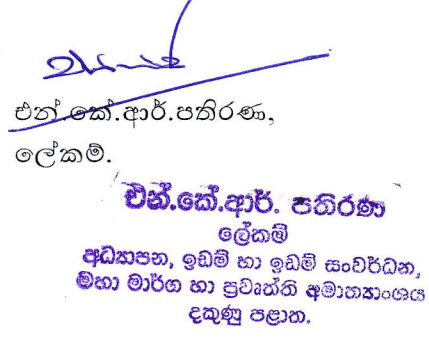 එන්.කේ.ආර්.පතිරණ,
ලේකම්.
එන්.කේ.ආර්. පතිරණ
ලේකම්
අධ්‍යාපන, ඉඩම් හා ඉඩම් සංවර්ධන,
මහා මාර්ග හා ප්‍රවෘත්ති අමාත්‍යාංශය
දකුණු පළාත.